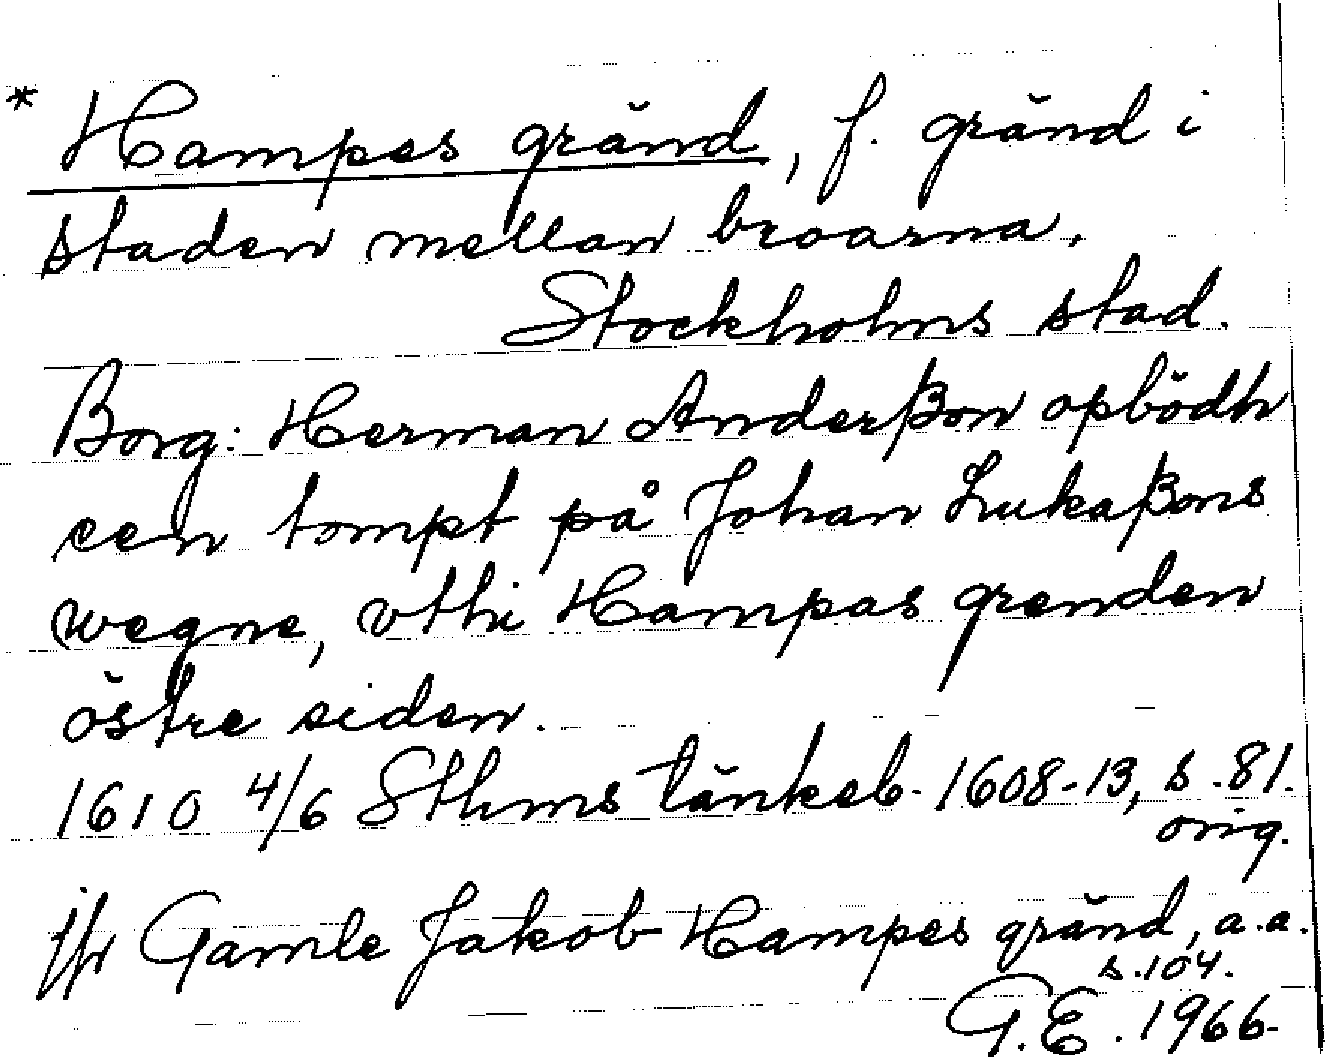 * Hampes gränd, f. gränd i
staden mellan broarna.
Stockholms stad.
Borg: Herman Anderßon opbödh
een tompt på Johan Lukaßons
wegne, vthi Hampas grenden
östre siden.
1610 4/6 Sthms tänkeb. 1608-13, s. 81.
orig.
jfr Gamle Jakob Hampes gränd, a.a.
s. 104.
G.E. 1966